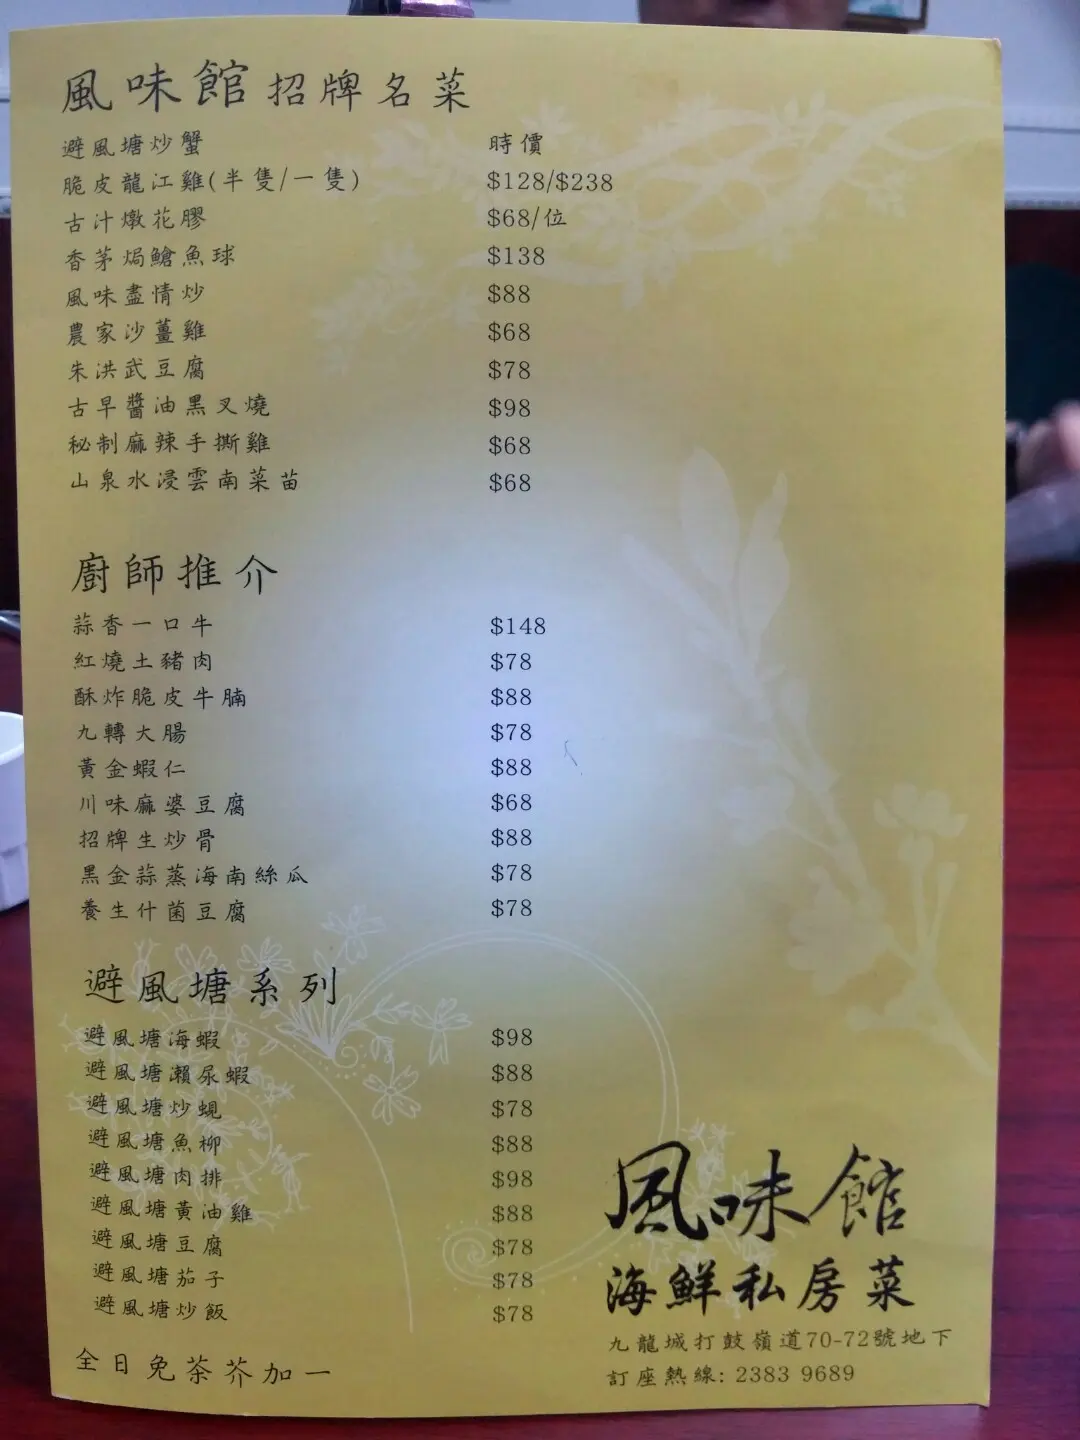 風味館招牌名菜
避風塘炒蟹 時價
脆皮龍江雞(半隻/一隻) $128/$238
古汁燉花膠 $68/位
香茅焗鱠魚球 $138
風味盡情炒 $88
農家沙薑雞 $68
朱洪武豆腐 $78
古早醬油黑叉燒 $98
秘制麻辣手撕雞 $68
山泉水浸雲南菜苗 $68
廚師推介
蒜香一口牛 $148
紅燒土豬肉 $78
酥炸脆皮牛腩 $88
九轉大腸 $78
黃金蝦仁 $88
川味麻婆豆腐 $68
招牌生炒骨 $88
黑金蒜蒸海南絲瓜 $78
養生什菌豆腐 $78
避風塘系列
避風塘海蝦 $98
避風塘瀨尿蝦 $88
避風塘炒蜆 $78
避風塘魚柳 $88
避風塘肉排 $98
避風塘黃油雞 $88
避風塘豆腐 $78
避風塘茄子 $78
避風塘炒飯 $78
全日免茶芥加一
風味館
海鮮私房菜
九龍城打鼓嶺道70-72號地下
訂座熱線: 2383 9689